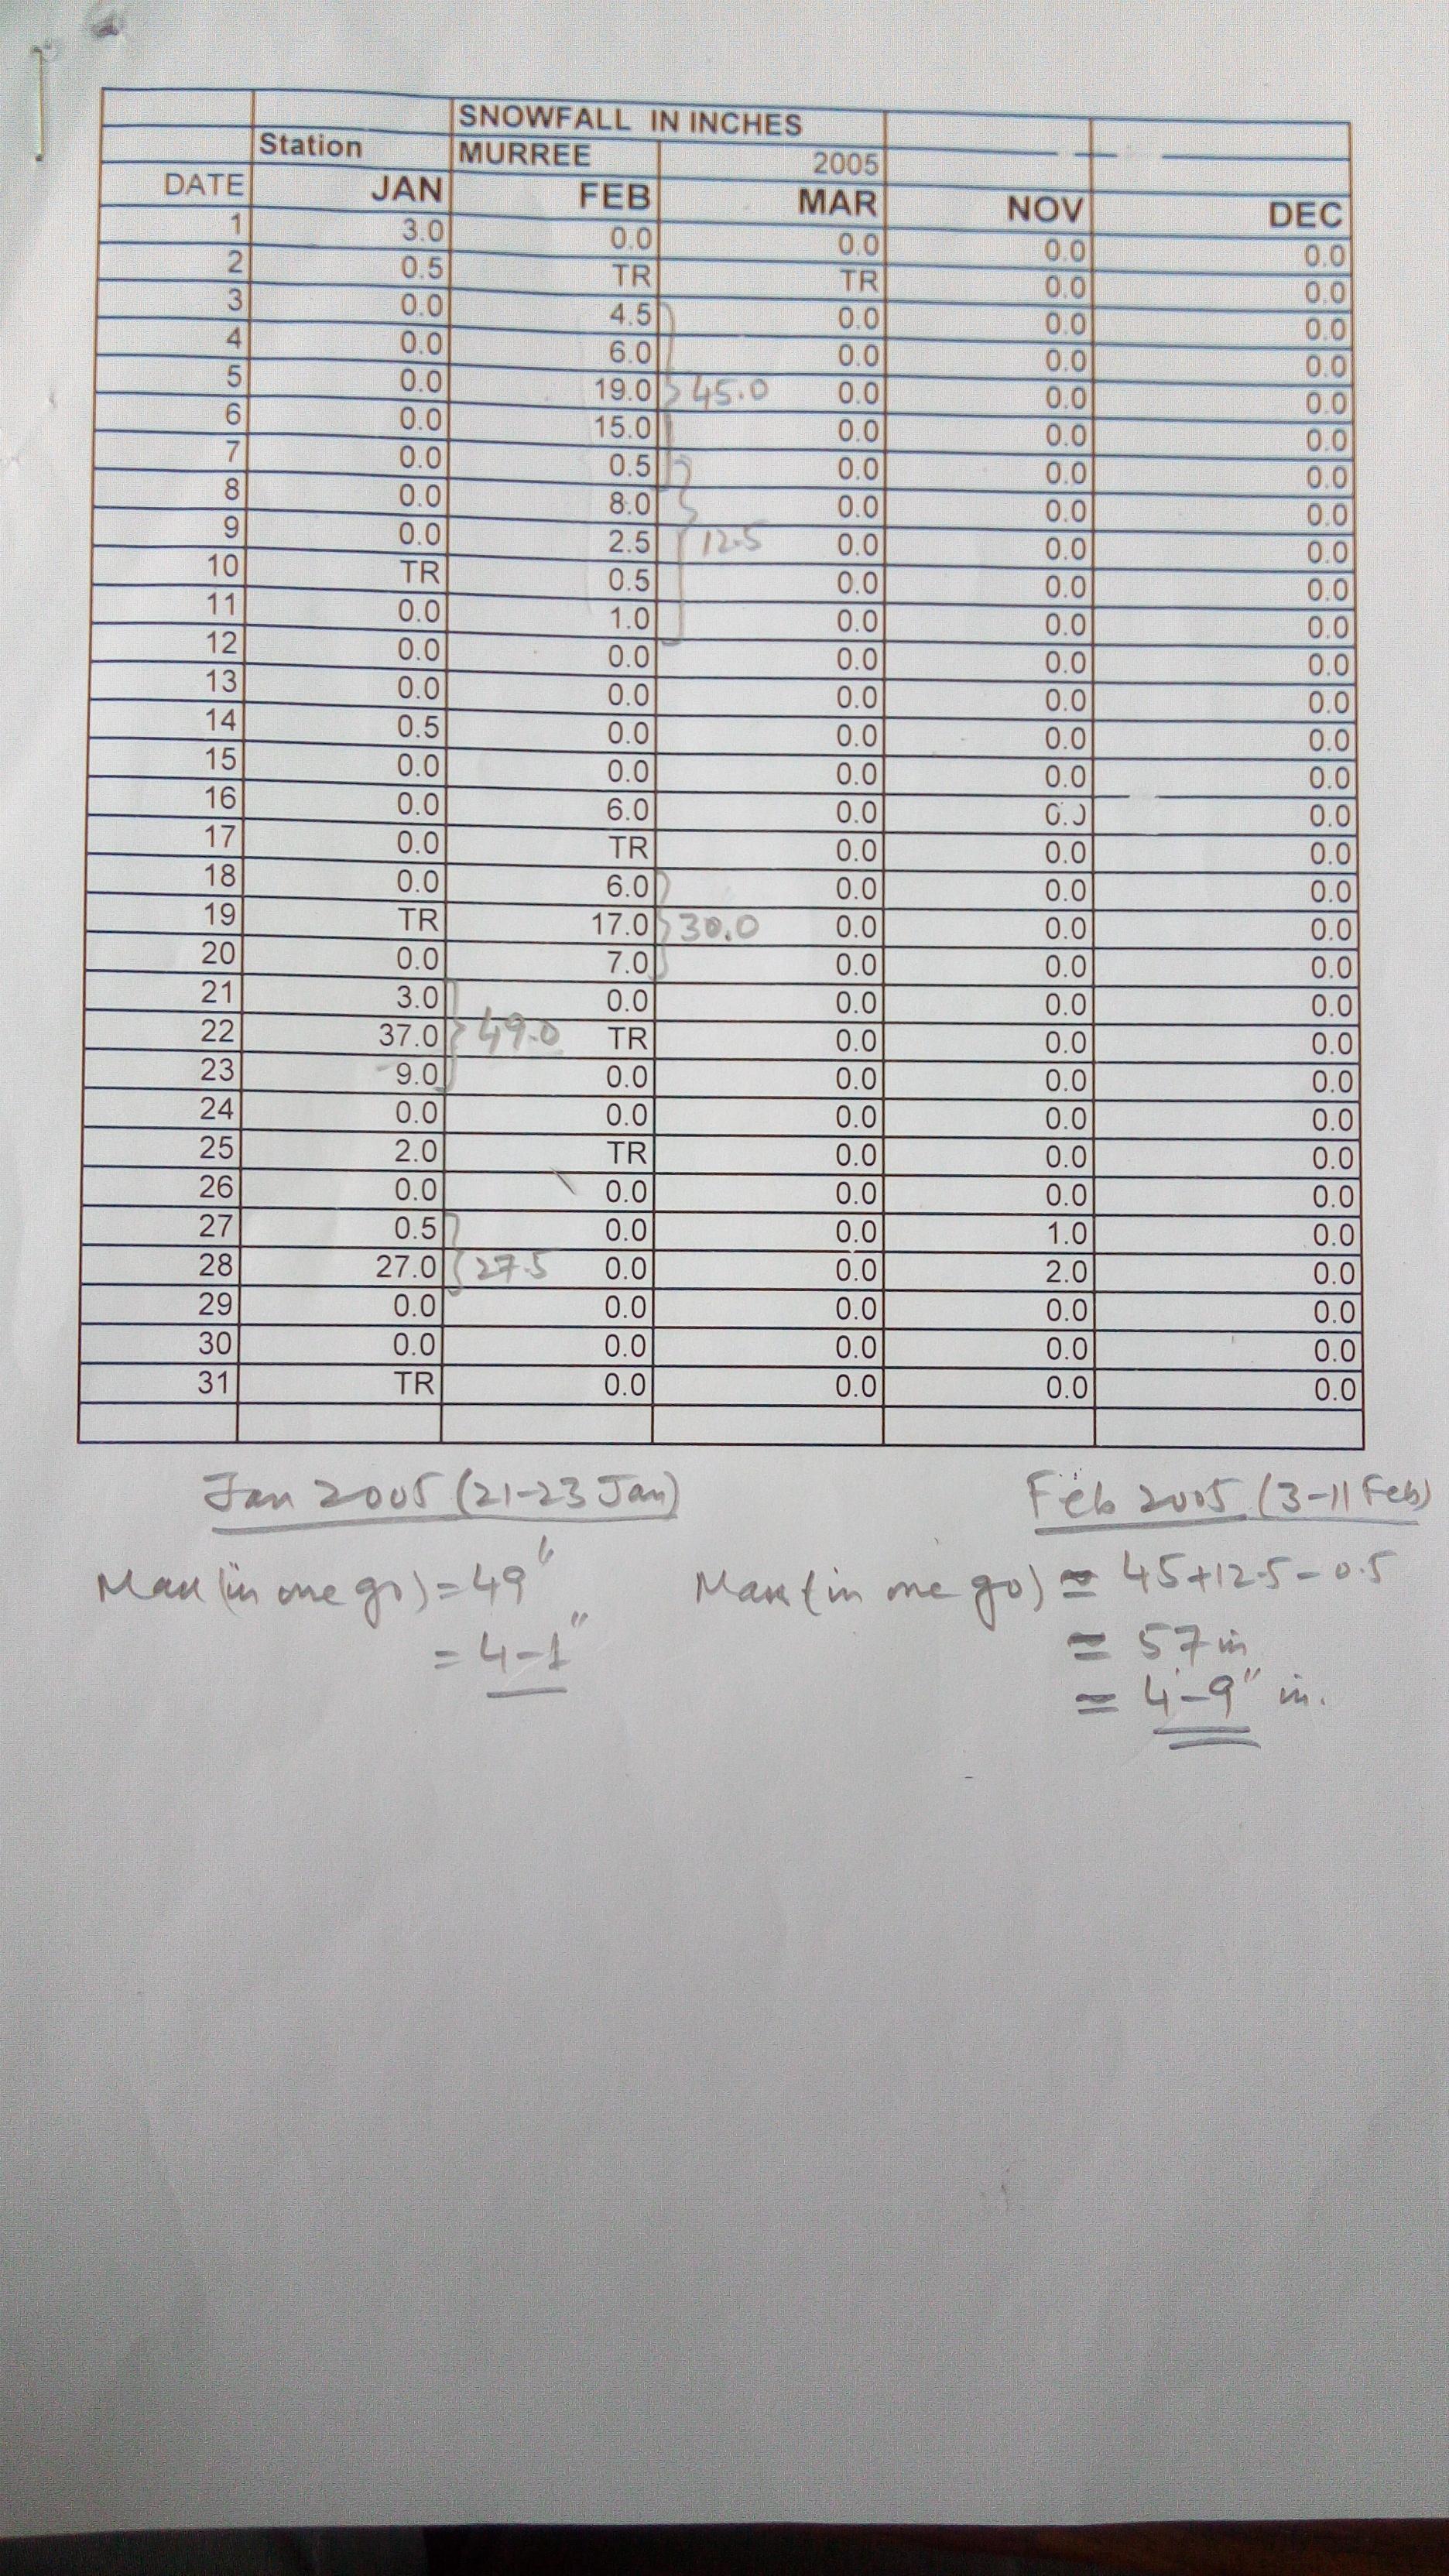 SNOWFALL IN INCHES
Station MURREE 2005
DATE JAN FEB MAR NOV DEC
1 3.0 0.0 0.0 0.0 0.0
2 0.5 TR TR 0.0 0.0
3 0.0 4.5 0.0 0.0 0.0
4 0.0 6.0 0.0 0.0 0.0
5 0.0 19.0 45.0 0.0 0.0 0.0
6 0.0 15.0 0.0 0.0 0.0
7 0.0 0.5 0.0 0.0 0.0
8 0.0 8.0 0.0 0.0 0.0
9 0.0 2.5 12.5 0.0 0.0 0.0
10 TR 0.5 0.0 0.0 0.0
11 0.0 1.0 0.0 0.0 0.0
12 0.0 0.0 0.0 0.0 0.0
13 0.0 0.0 0.0 0.0 0.0
14 0.5 0.0 0.0 0.0 0.0
15 0.0 0.0 0.0 0.0 0.0
16 0.0 6.0 0.0 0.0 0.0
17 0.0 TR 0.0 0.0 0.0
18 0.0 6.0 0.0 0.0 0.0
19 TR 17.0 30.0 0.0 0.0 0.0
20 0.0 7.0 0.0 0.0 0.0
21 3.0 0.0 0.0 0.0 0.0
22 37.0 49.0 TR 0.0 0.0 0.0
23 9.0 0.0 0.0 0.0 0.0
24 0.0 0.0 0.0 0.0 0.0
25 2.0 TR 0.0 0.0 0.0
26 0.0 0.0 0.0 0.0 0.0
27 0.5 0.0 0.0 1.0 0.0
28 27.0 27.5 0.0 0.0 2.0 0.0
29 0.0 0.0 0.0 0.0 0.0
30 0.0 0.0 0.0 0.0 0.0
31 TR 0.0 0.0 0.0 0.0
Jan 2005 (21-23 Jan) Feb 2005 (3-11 Feb)
Max (in one go) = 49" Max (in one go) = 45+12.5-0.5
= 4-1" = 57 in
= 4'-9" in.